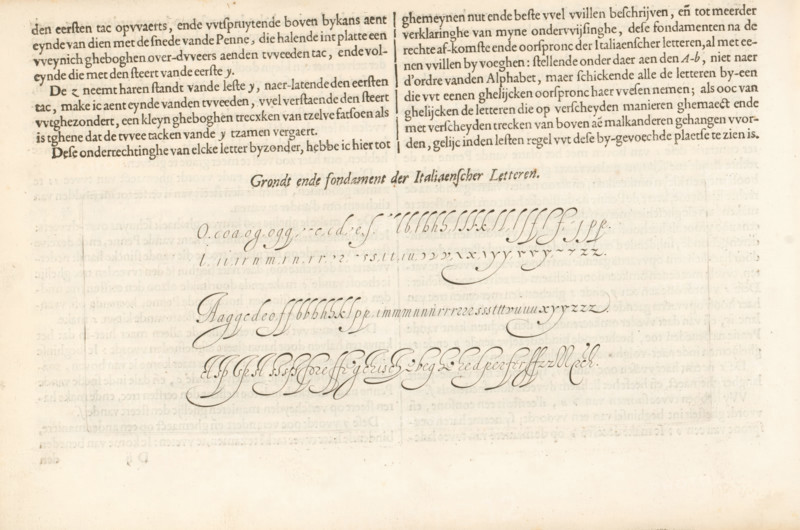 den eersten tac opvvaerts, ende vvtspruytende boven bykans aent
eynde van dien met de snede vande Penne, die halende int platte een
vveynich gheboghen over-dvveers aenden tvveeden tac, ende vol-
eynde die met den steert vande eerste y.
De z neemt haren standt vande leste y, naer-latende den eersten
tac, make ic aent eynde vanden tvveeden, vvel verstaende den steert
vvtghezondert, een kleyn gheboghen trecxken van tzelve fatsoen als
is tghene dat de tvvee tacken vande y tzamen vergaert.
Dese onderrechtinghe van elcke letter byzonder, hebbe ic hier tot
ghemeynen nut ende beste vvel vvillen beschrijven, eñ tot meerder
verklaringhe van myne ondervvijsinghe, dese fondamenten na de
rechte af-komste ende oorspronc der Italiaenscher letteren, al met ee-
nen vvillen by voeghen: stellende onder daer aen den A-b, niet naer
d'ordre vanden Alphabet, maer schickende alle de letteren by-een
die vvt eenen ghelijcken oorspronc haer vvesen nemen; als ooc van
ghelijcken de letteren die op verscheyden manieren ghemaect ende
met verscheyden trecken van boven aẽ malkanderen gehangen vvor-
den, gelijc inden lesten regel vvt dese by-gevoechde plaetse te zien is.
Grondt ende fondament der Italiaenscher Letteren.
Aaggcdeoffbbbhhklpp immmnnnrrrzzzssssttttvuuuxyyzzz